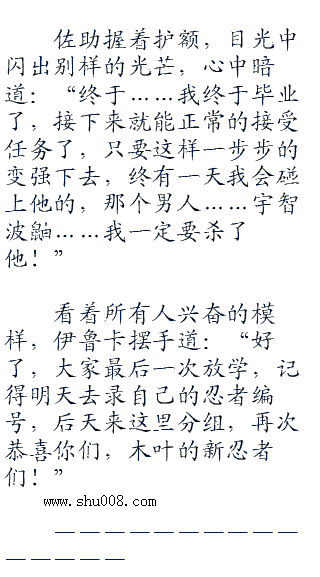 佐助握着护额，目光中
闪出别样的光芒，心中暗
道：“终于……我终于毕业
了，接下来就能正常的接受
任务了，只要这样一步步的
变强下去，终有一天我会碰
上他的，那个男人……宇智
波鼬……我一定要杀了
他！”
看着所有人兴奋的模
样，伊鲁卡摆手道：“好
了，大家最后一次放学，记
得明天去录自己的忍者编
号，后天来这里分组，再次
恭喜你们，木叶的新忍者
们！”
www.shu008.com
－－－－－－－－－－
－－－－－